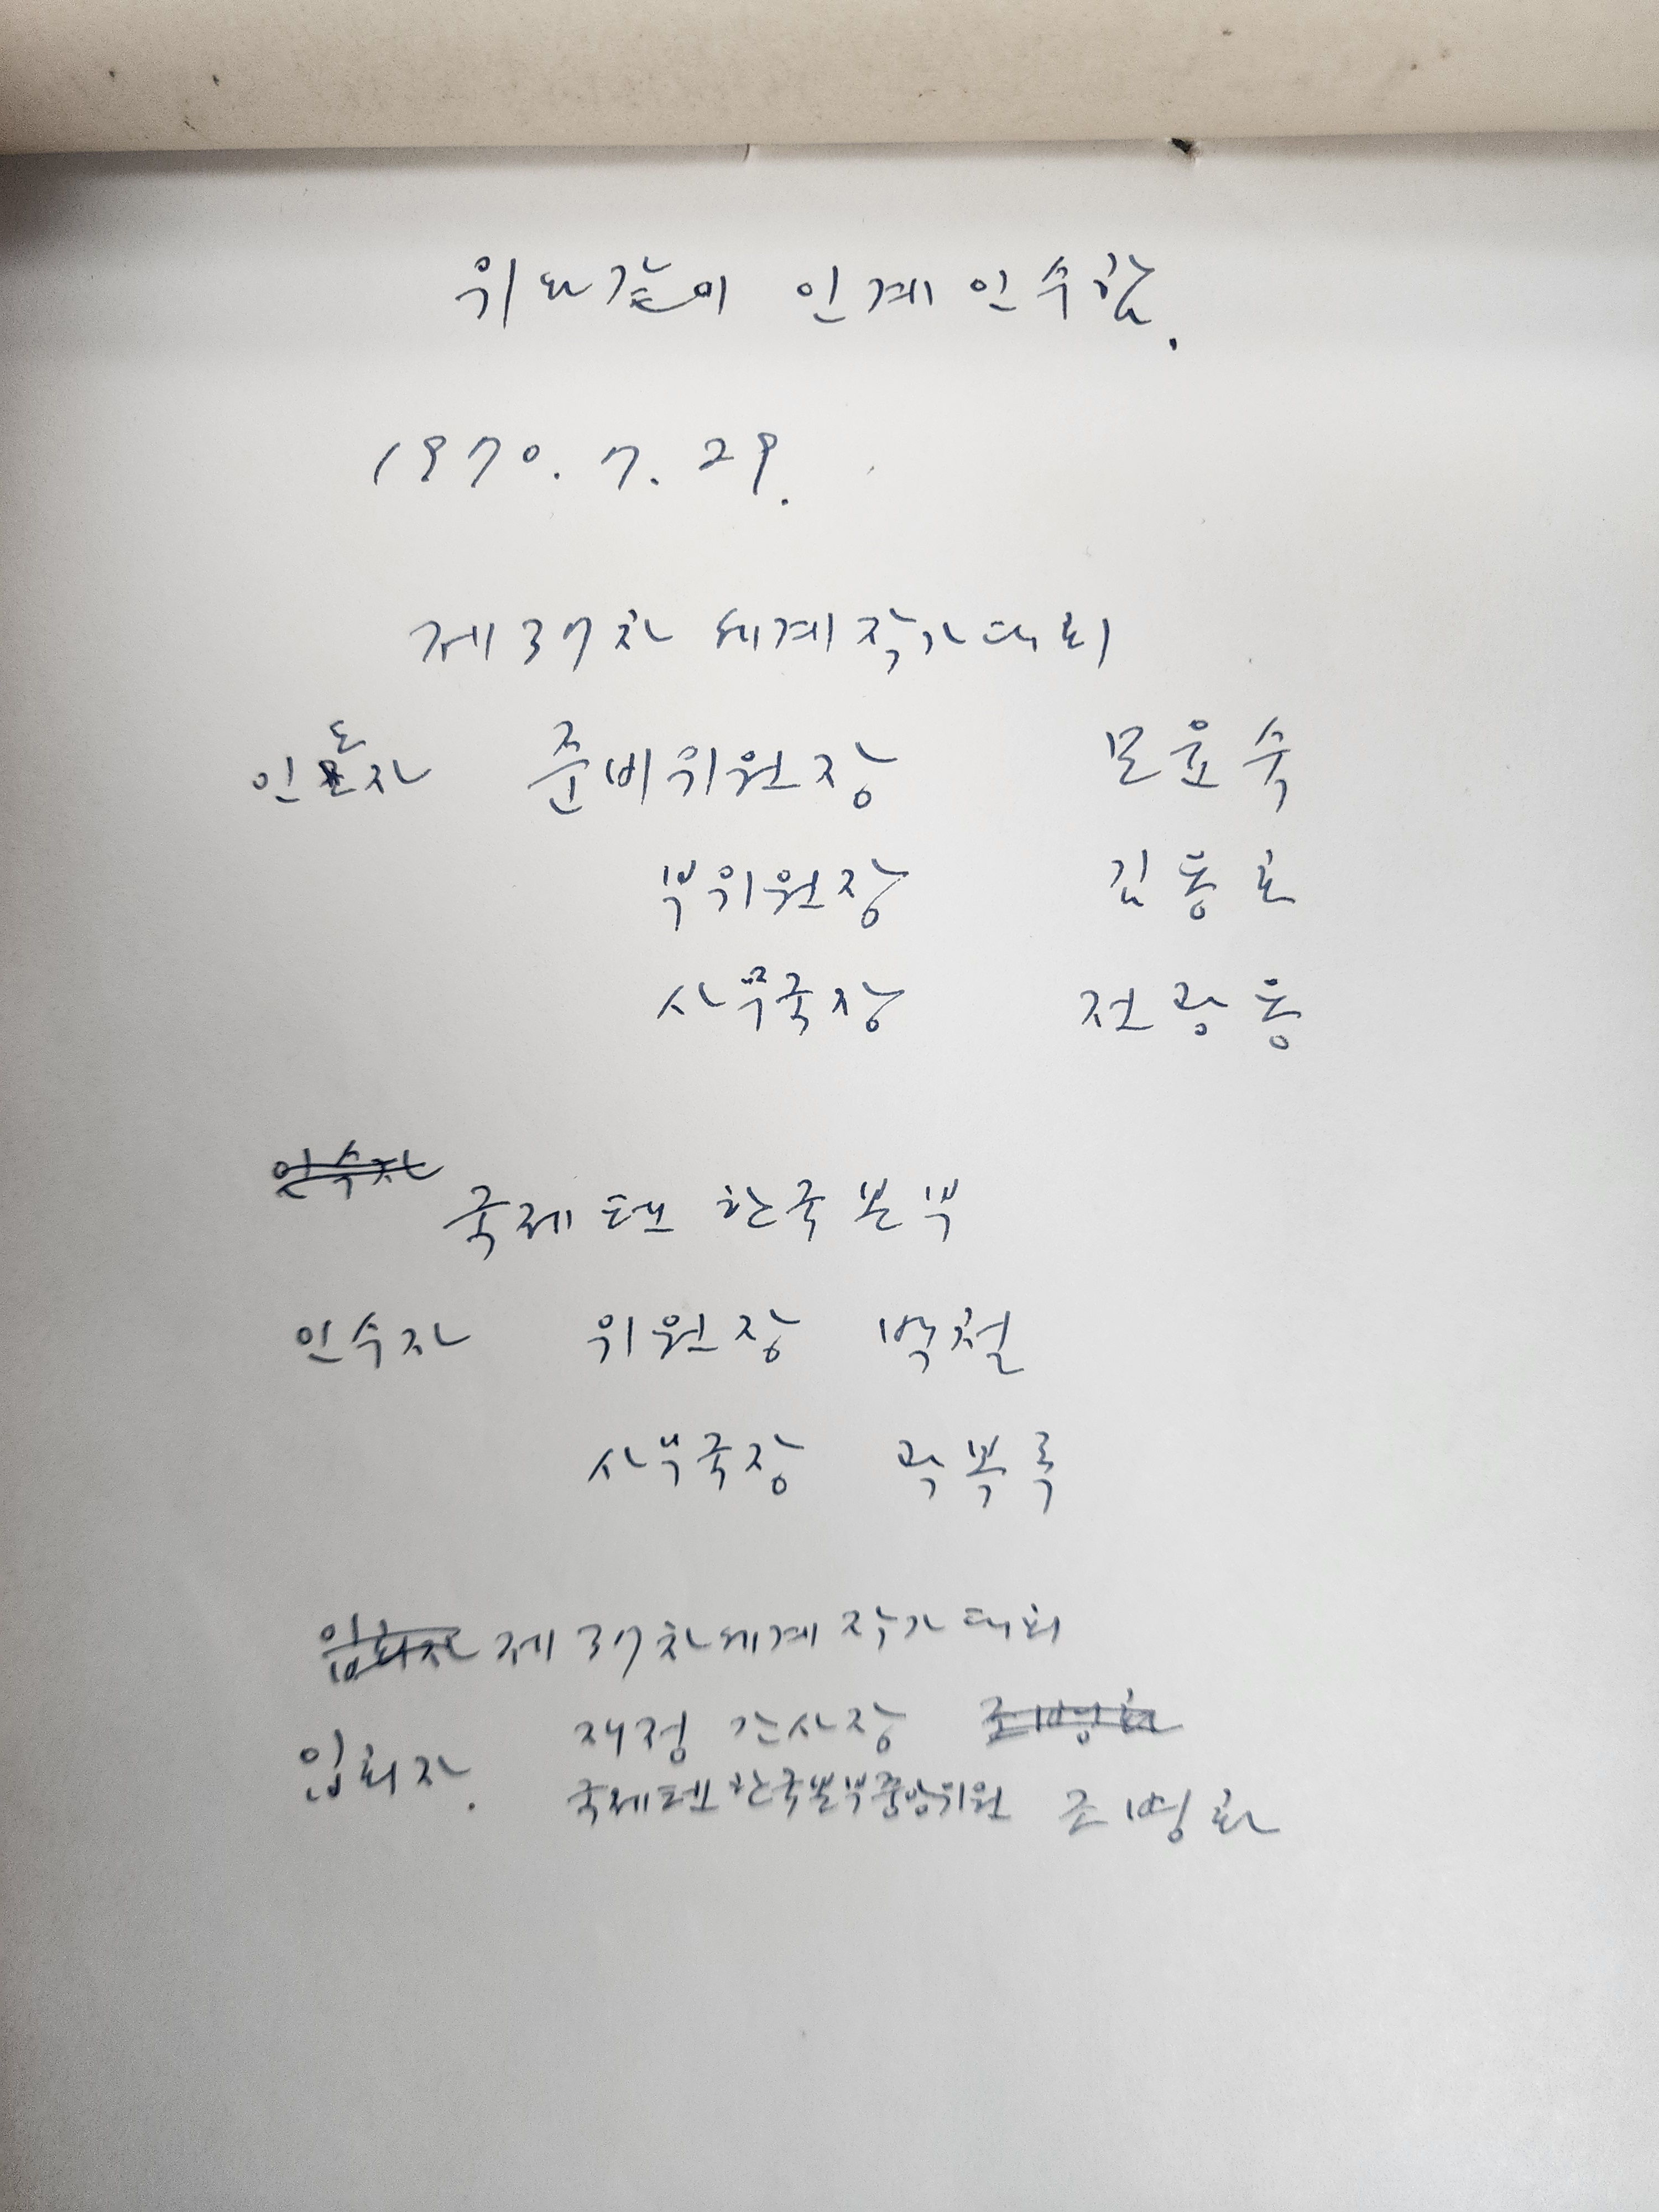 위와같이 인계인수함.
1970. 7. 29.
제37차 세계작가대회
인도자 준비위원장 모윤숙
부위원장 김동호
사무국장 전광용
인수자
국제펜 한국본부
인수자 위원장 백철
사무국장 곽복록
입회자 제37차세계작가대회
재정 간사장 조병화
입회자. 국제펜한국본부중앙위원 조병화